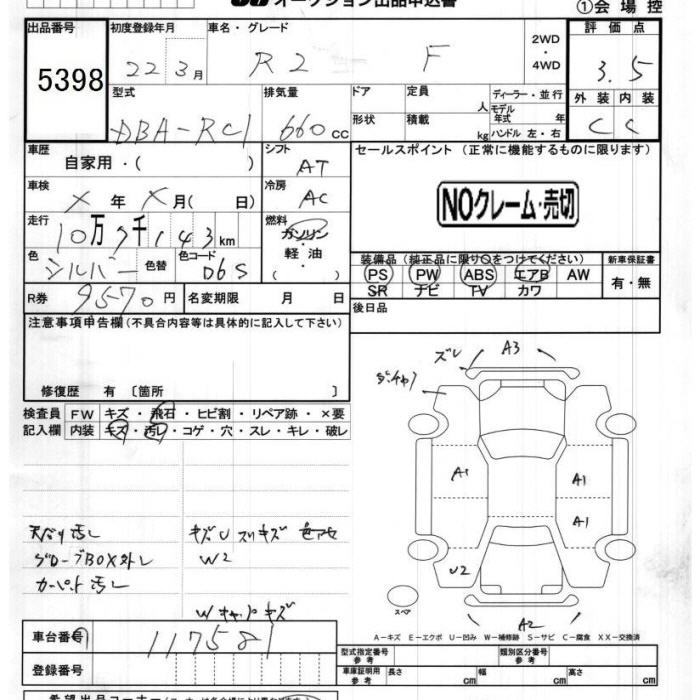 オークション出品申込書 ①会場控
出品番号 初度登録年月 車名・グレード 2WD・4WD 評価点
5398 22 3月 R2 F 3.5
型式 排気量 ドア 定員 人 ディーラー・並行 外装 内装
DBA-RC1 660cc 形状 積載 kg モデル年式 年 ハンドル 左・右 C C
車歴 シフト セールスポイント (正常に機能するものに限ります)
自家用・( ) AT
車検 冷房 NOクレーム・売切
X 年 X 月( 日) AC
走行 燃料
10万7千143km ガソリン・軽油・( )
色 色替 色コード 装備品 (純正品に限り○をつけてください) 新車保証書
シルバー D6S PS PW ABS エアB AW 有・無
SR ナビ TV カワ
R券 9570円 名変期限 月 日 後日品
注意事項申告欄 (不具合内容等は具体的に記入して下さい)
ズレ A3
修復歴 有 〔箇所 〕
検査員 FW キズ・飛石・ヒビ割・リペア跡・×要
記入欄 内装 キズ・汚レ・コゲ・穴・スレ・キレ・破レ
A1 A1
A1
天バリ汚レ キズU スリキズ
グローブBOX外レ W2 U2
カーペット汚レ
スペア
Wキャップキズ A2
A-キズ E-エクボ U-凹み W-補修跡 S-サビ C-腐食 XX-交換済
車台番号 117581 型式指定番号 参考 類別区分番号 参考
登録番号 車庫証明用 参考 長さ cm 幅 cm 高さ cm
希望出品コーナー